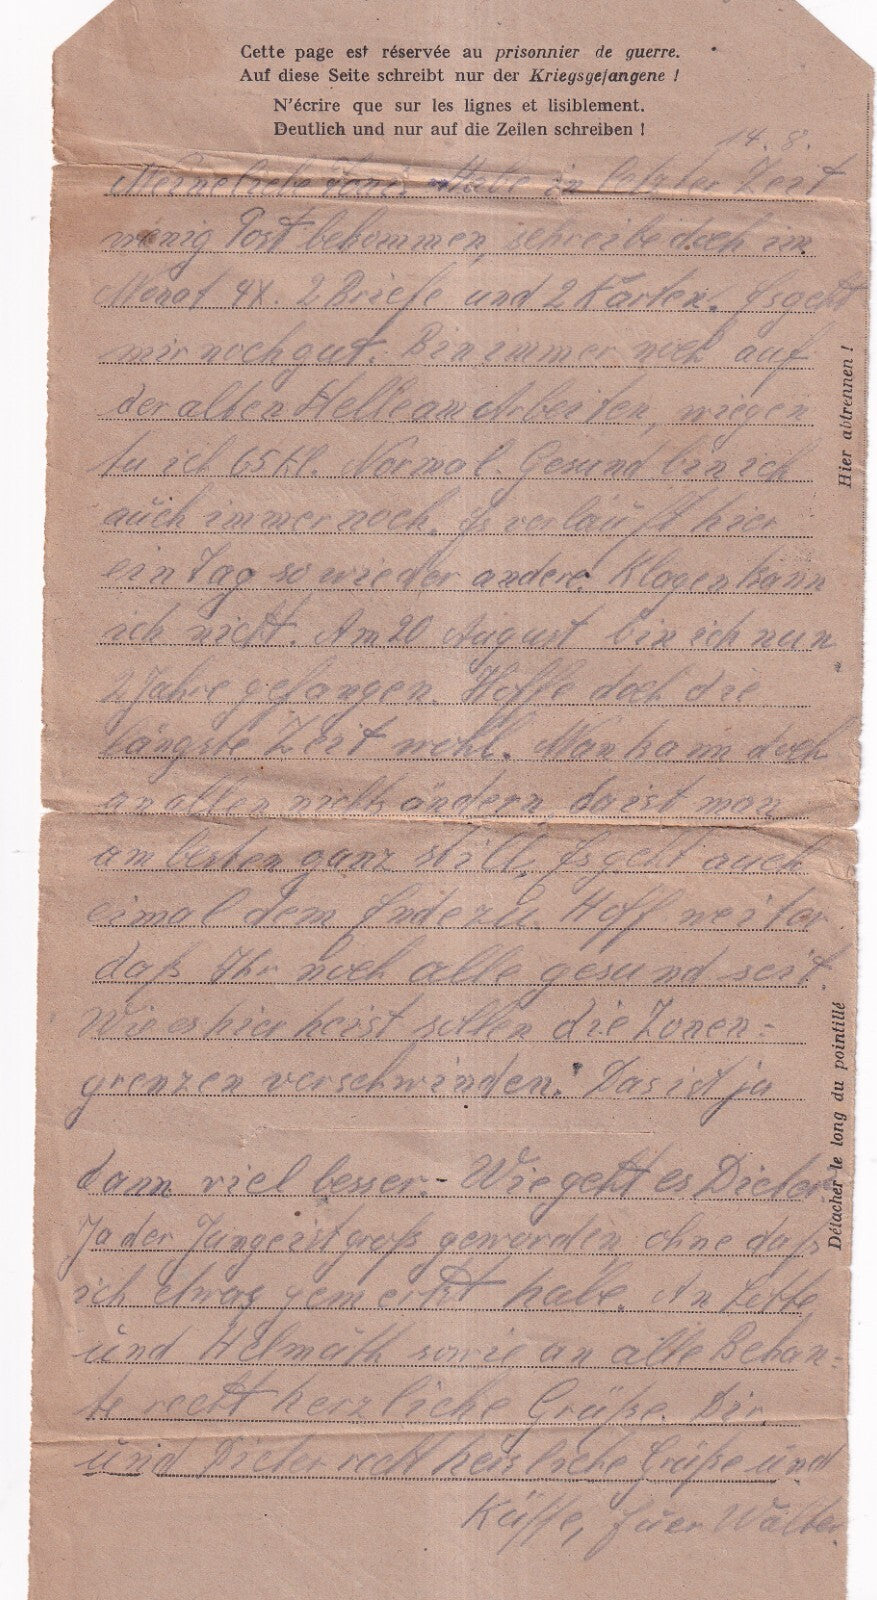 Cette page est réservée au prisonnier de guerre.
Auf diese Seite schreibt nur der Kriegsgefangene !
N'écrire que sur les lignes et lisiblement.
Deutlich und nur auf die Zeilen schreiben !
14. 8.
Meine liebe Habe in letzter Zeit
wenig Post bekommen, schreibe doch im
Monat 4x. 2 Briefe und 2 Karten. Es geht
mir noch gut. Bin immer noch auf
der alten Stelle am Arbeiten, wiegen
tu ich 65 Kl. Normal. Gesund bin ich
auch immer noch. Es verläuft hier
ein Tag so wie der andere. Klagen kann
ich nicht. Am 20 August bin ich nun
2 Jahre gefangen. Hoffe doch die
längste Zeit wohl. Man kann doch
an allen nichts ändern, da ist man
am besten ganz still. Es geht auch
eimal dem Ende zu. Hoff weiter
daß Ihr noch alle gesund seit.
Wie es hier heist sollen die Zonen-
grenzen verschwinden. Das ist ja
dann viel besser. - Wie geht es Dieter
Ja der Junge ist groß geworden ohne daß
ich etwas gemerkt habe. An
und Helmuth sowie an alle Bekan-
te recht herzliche Grüße. Dir
und Dieter recht Grüße und
Küsse, Euer Walter
Hier abtrennen !
Détacher le long du pointillé